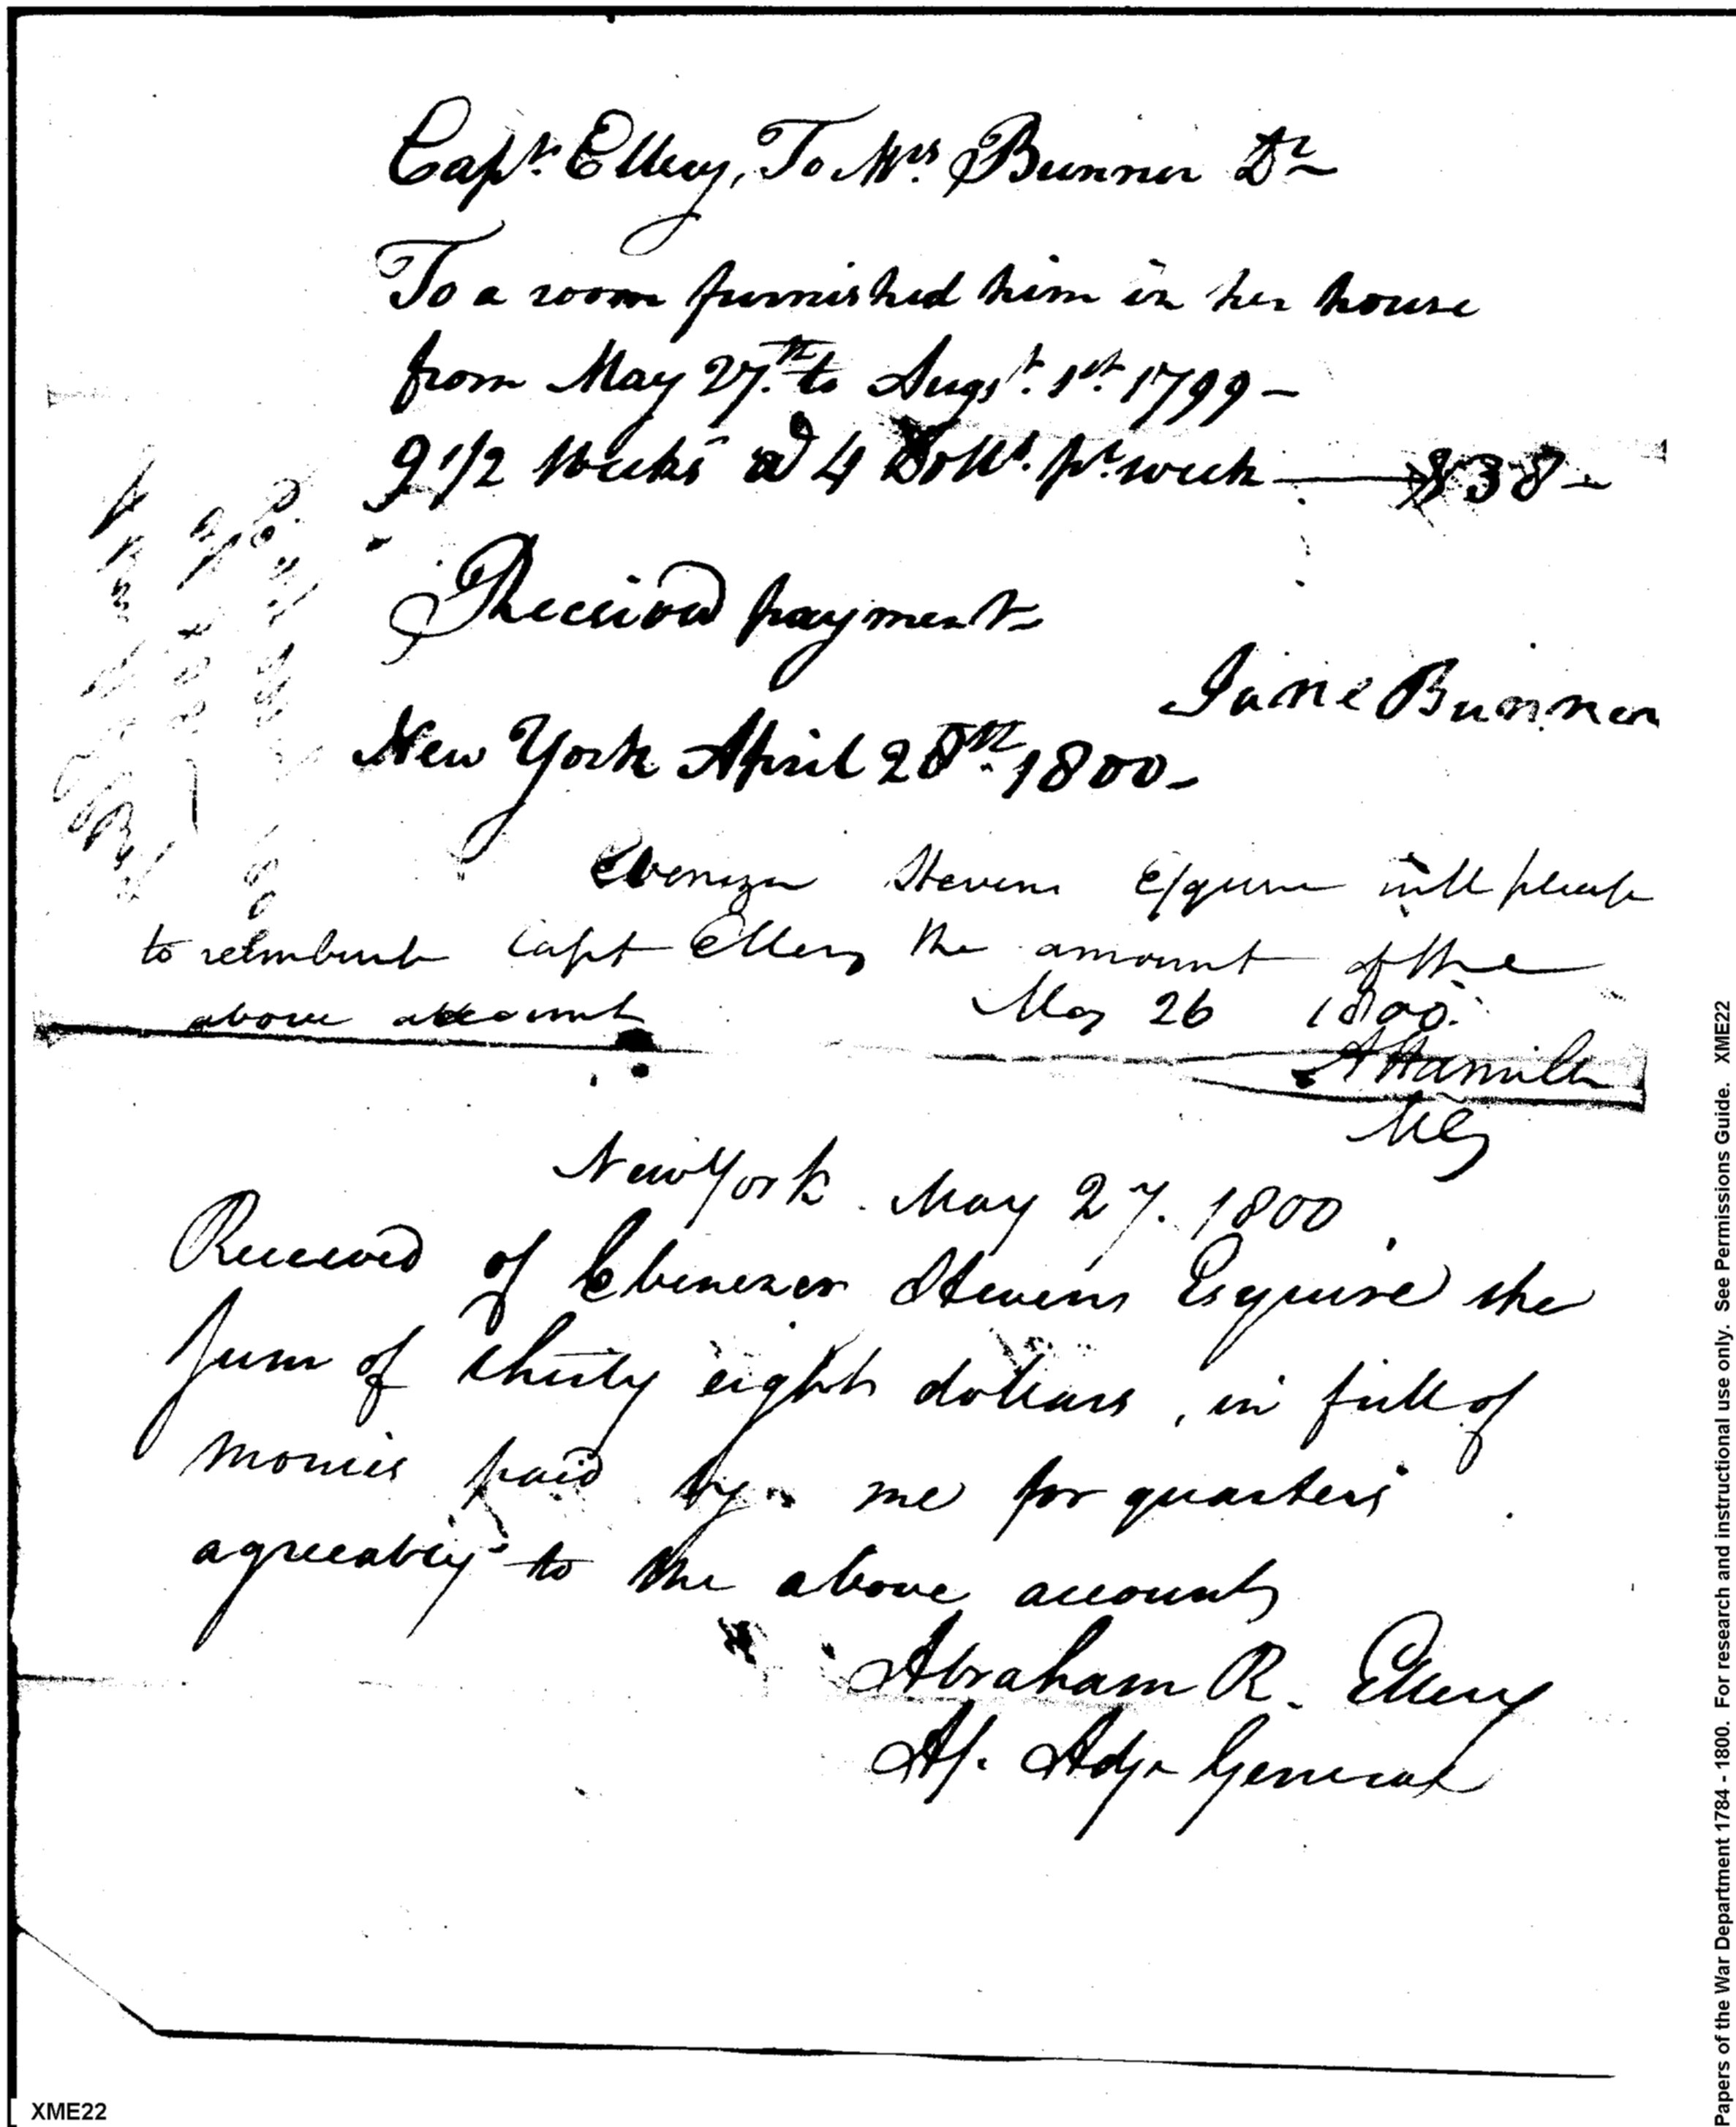 Capt. Ellery, To Mrs. Bunner Dr
To a room furnished him in her house
from May 27.th to Augst. 1st. 1799 –
9 1/2 Weeks a 4 Dolls. pr. week — $38 –
Received payment –
Jane Bunner
New York April 28th. 1800 –
Ebenezer Stevens Esquire will please
to reimburse Capt Ellery the amount of the
above account
May 26 1800.
A Hamilton
MG
New York. May 27. 1800
Received of Ebenezer Stevens Esquire the
sum of thirty eight dollars, in full of
monies paid by me for quarters
agreeably to the above account,
Abraham R. Ellery
As. Adjt General
XME22
Papers of the War Department 1784 - 1800. For research and instructional use only. See Permissions Guide. XME22